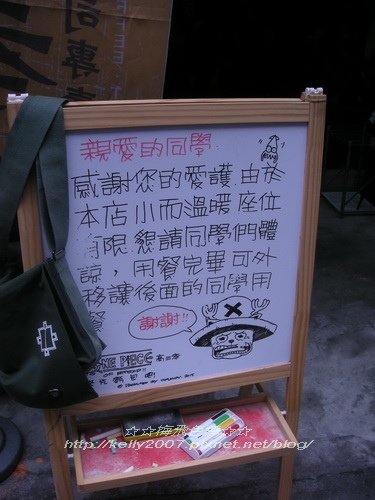 司專
親愛的同學
感謝您的愛護 由於
本店小而溫暖 座位
有限 懇請同學們體
諒，用餐完畢可外
移讓後面的同學用
餐
謝謝!!
ONE PIECE
http://kelly2007.pixnet.net/blog/